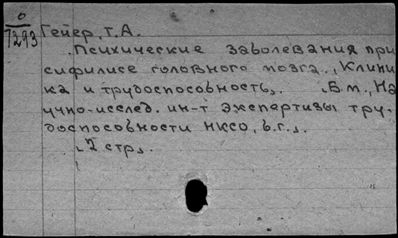 0
1293
Гейер, Т.А.
Психические заболевания при
сифилисе головного мозга., Клини
ка и трудоспособность,. В.м., На
учно-исслед. ин-т экспертизы тру-
доспособности НКСО, б.г.,.
2 стр,.